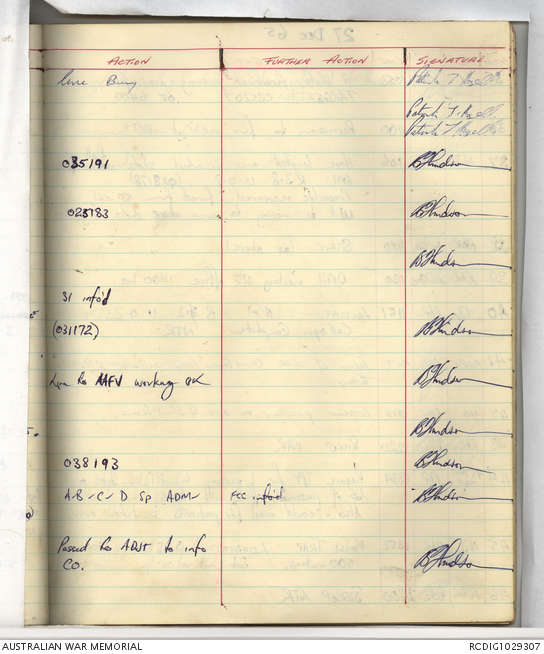 ACTION FURTHER ACTION SIGNATURE
Line Busy
035191 B Hudson
023183 B Hudson
B Hudson
31 info'd
(031172) B Hudson
AAFV working OK B Hudson
B Hudson
038193 B Hudson
A-B-C-D Sp ADM FCC info'd B Hudson
Passed to ADJT to info B Hudson
CO.
AUSTRALIAN WAR MEMORIAL RCDIG1029307